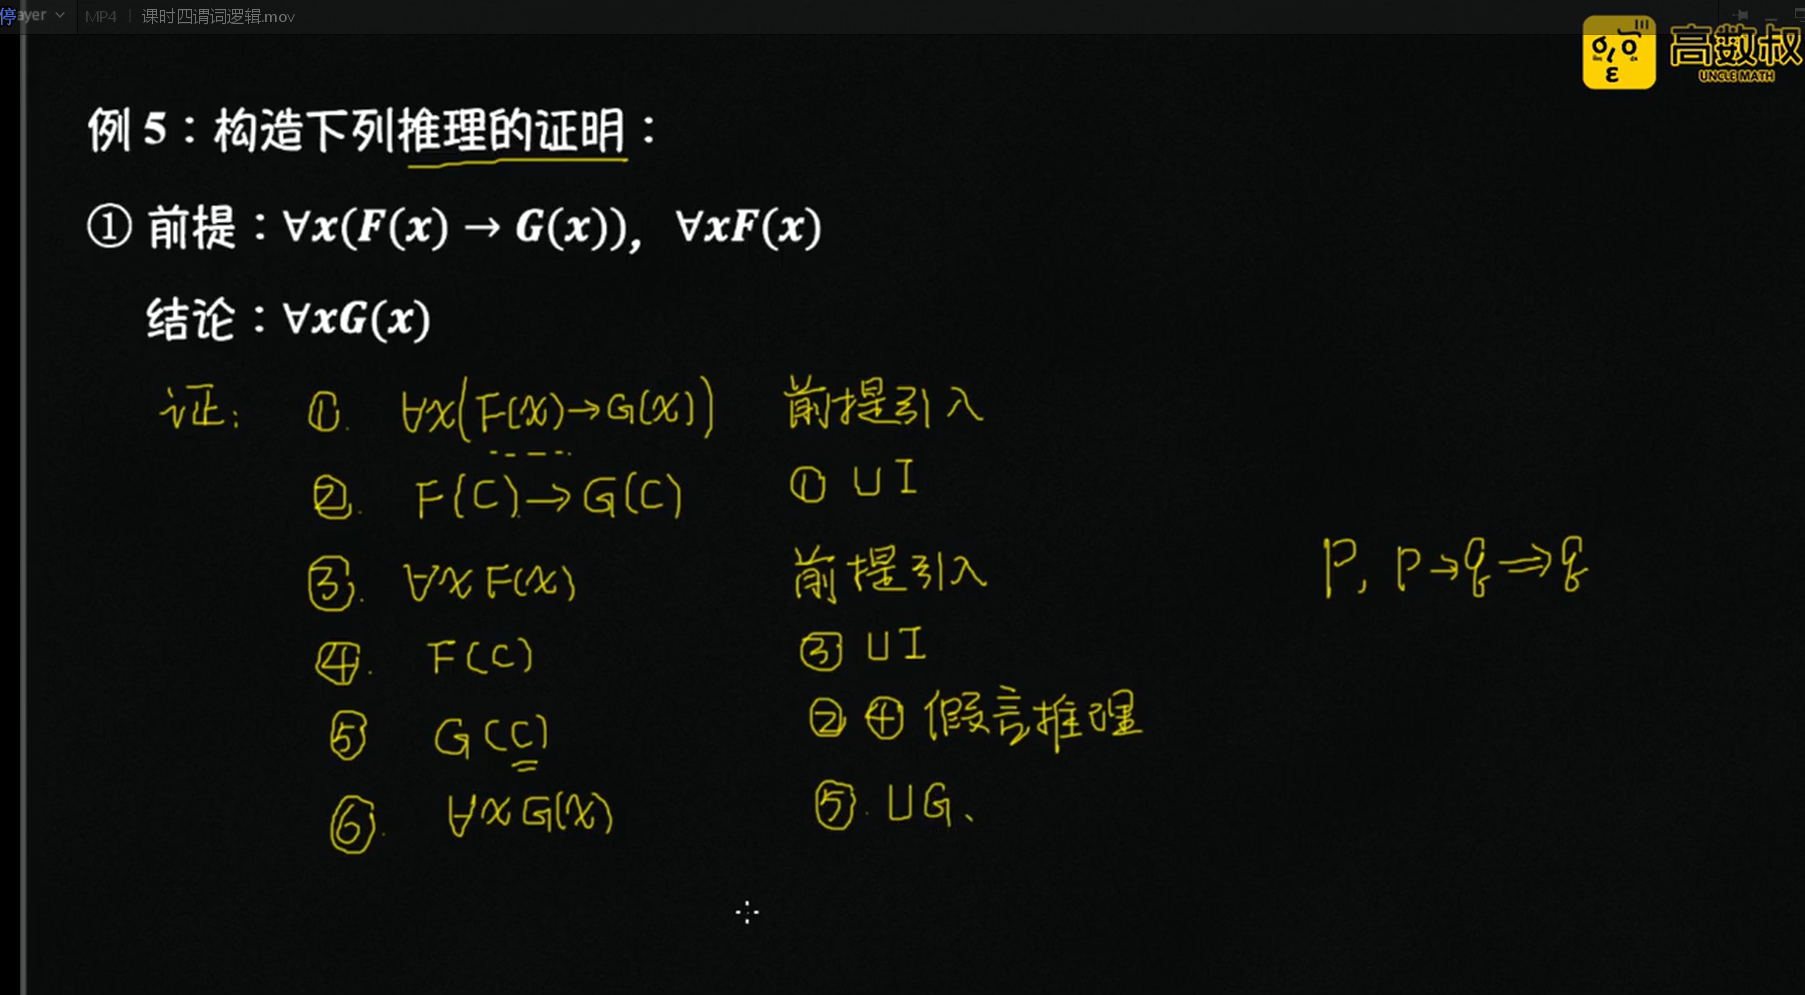 停ayer MP4 | 课时四谓词逻辑.mov
高数叔
UNCLE MATH
例 5：构造下列推理的证明：
① 前提：∀x(F(x) → G(x)), ∀xF(x)
结论：∀xG(x)
证: ①. ∀x(F(x)→G(x)) 前提引入
②. F(C)→G(C) ① UI
③. ∀x F(x) 前提引入
P, P→q⇒q
④. F(C) ③ UI
⑤ G(C) ②④假言推理
⑥. ∀x G(x) ⑤. UG、